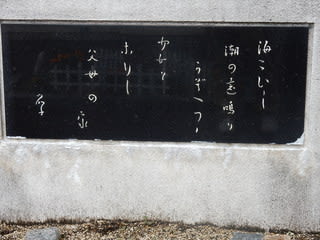 海こひし
潮の遠鳴り
かぞへつゝ
少女と
なりし
父母の家